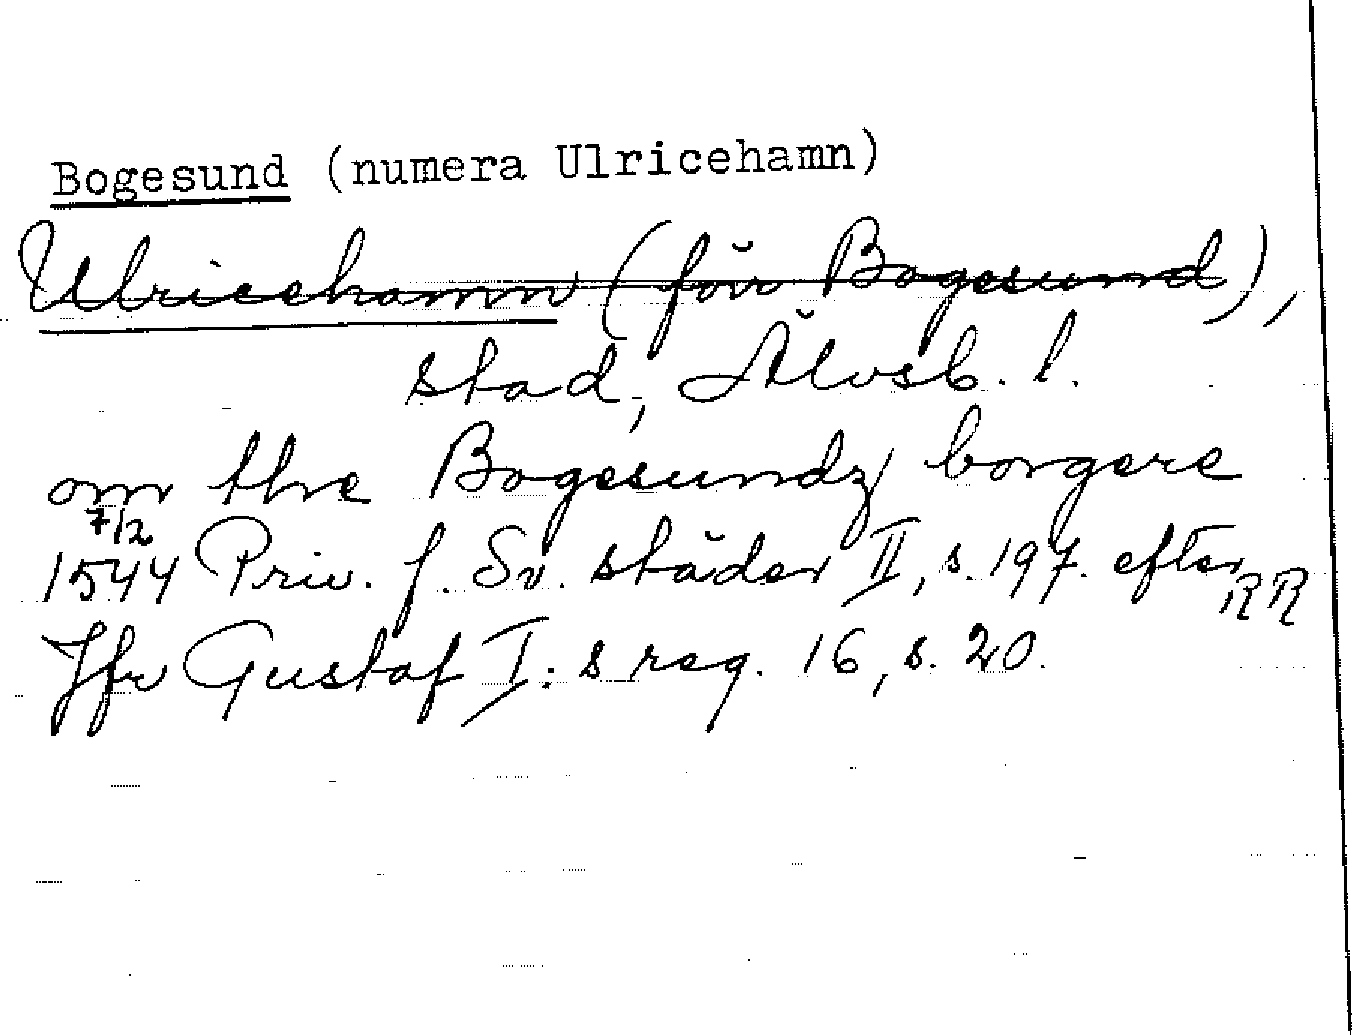 Bogesund (numera Ulricehamn)
Ulricehamn (förr Bogesund),
stad, Älvsb. l.
om thre Bogesundz borgere
7/2
1544 Priv. f. Sv. städer II, s. 197. efter RR
Jfr Gustaf I:s reg. 16, s. 20.